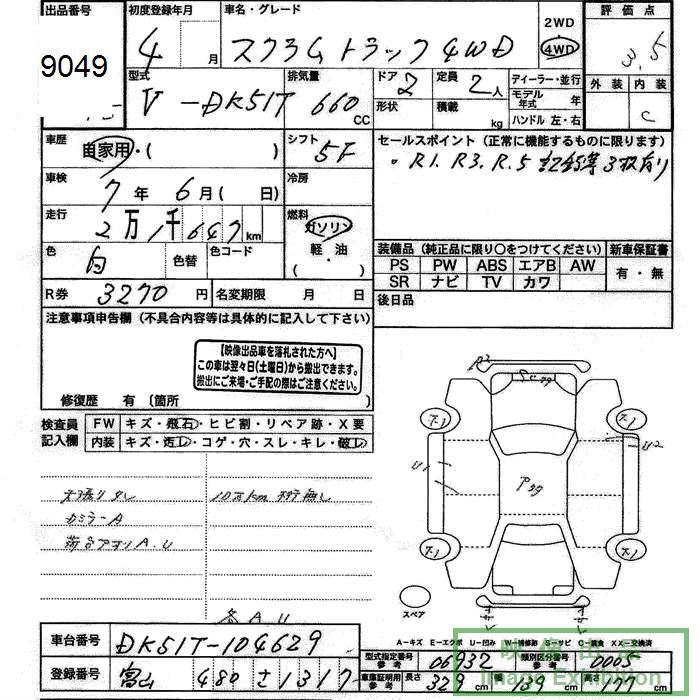 出品番号
9049
初度登録年月
4 月
車名・グレード
スクラムトラック 4WD
2WD
4WD
評価点
3.5
外装 内装
C
型式
V-DK51T
排気量
660 CC
ドア 2
形状
定員 2人
積載 kg
ディーラー・並行
モデル年式 年
ハンドル 左・右
車歴
自家用・( )
シフト
5F
セールスポイント (正常に機能するものに限ります)
車検
7年 6月( 日)
冷房
走行
2万1千647km
燃料
ガソリン
軽・油
( )
色
白
色替
色コード
装備品 (純正品に限り〇をつけてください)
新車保証書
PS PW ABS エアB AW
SR ナビ TV カワ
有・無
R券 3270円
名変期限 月 日
後日品
注意事項申告欄 (不具合内容等は具体的に記入して下さい)
【映像出品車を落札された方へ】
この車は翌々日(土曜日)から搬出できます。
搬出にご来場・ご手配の際はご注意ください。
修復歴 有 〔箇所 〕
検査員記入欄
FW キズ・飛石・ヒビ割・リペア跡・X要
内装 キズ・汚レ・コゲ・穴・スレ・キレ・破レ
カミラーA
荷台アオリA.U
10万km
各A.U
スペア
A-キズ E-エクボ U-凹み W-補修跡 S-サビ C-腐食 XX-交換済
車台番号
DK51T-104629
登録番号
富山 480 さ 1317
型式指定番号 参考 06932
類別区分番号 参考 0005
車庫証明用 参考 長さ 329cm 幅 139cm 高さ cm
映像出展
Image Exhibition